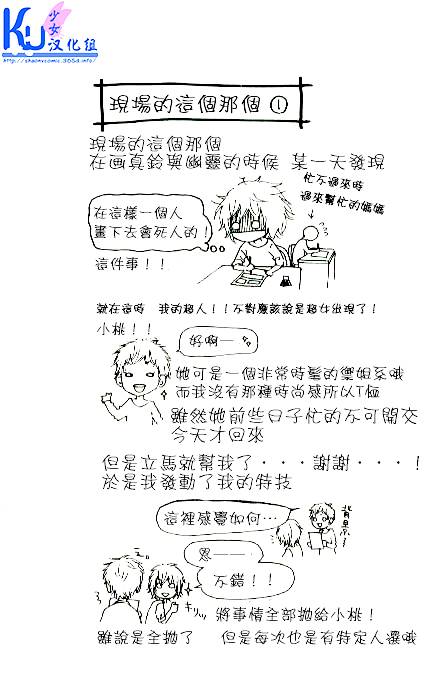 KU少女汉化组
http://shaonvcomic.3053.info/
現場的這個那個①
現場的這個那個
在画真鈴與幽靈的時候 某一天發現
忙不過來時
過來幫忙的媽媽
在這樣一個人
畫下去會死人的！
這件事！！
就在這時 我的超人！！不對應該說是超女出現了！
小桃！！
好啊—
她可是一個非常時髦的靈姐系哦
而我沒有那種時尚感所以T恤
雖然她前些日子忙的不可開交
今天才回來
但是立馬就幫我了・・・謝謝・・・！
於是我發動了我的特技
這裡感覺如何…
背景～
恩——
不錯！！
キリッ
將事情全部拋給小桃！
雖說是全拋了 但是每次也是有特定人選哦